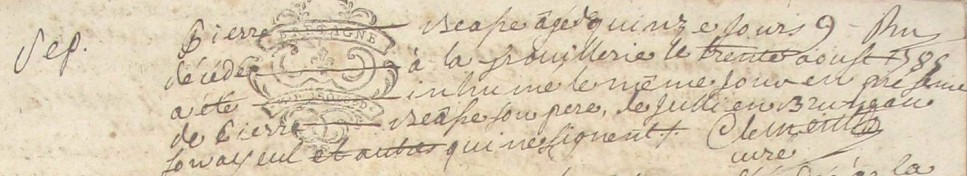 Sep. Pierre Beasse âgé de quinze jours
décédé à la grouillerie le trente aoust 1788
a été inhumé le même jour en présence
de Pierre Beasse son pere, de Jullien Bruneau
son ayeul et autres qui ne signent.
Clement
curé
BRETAGNE